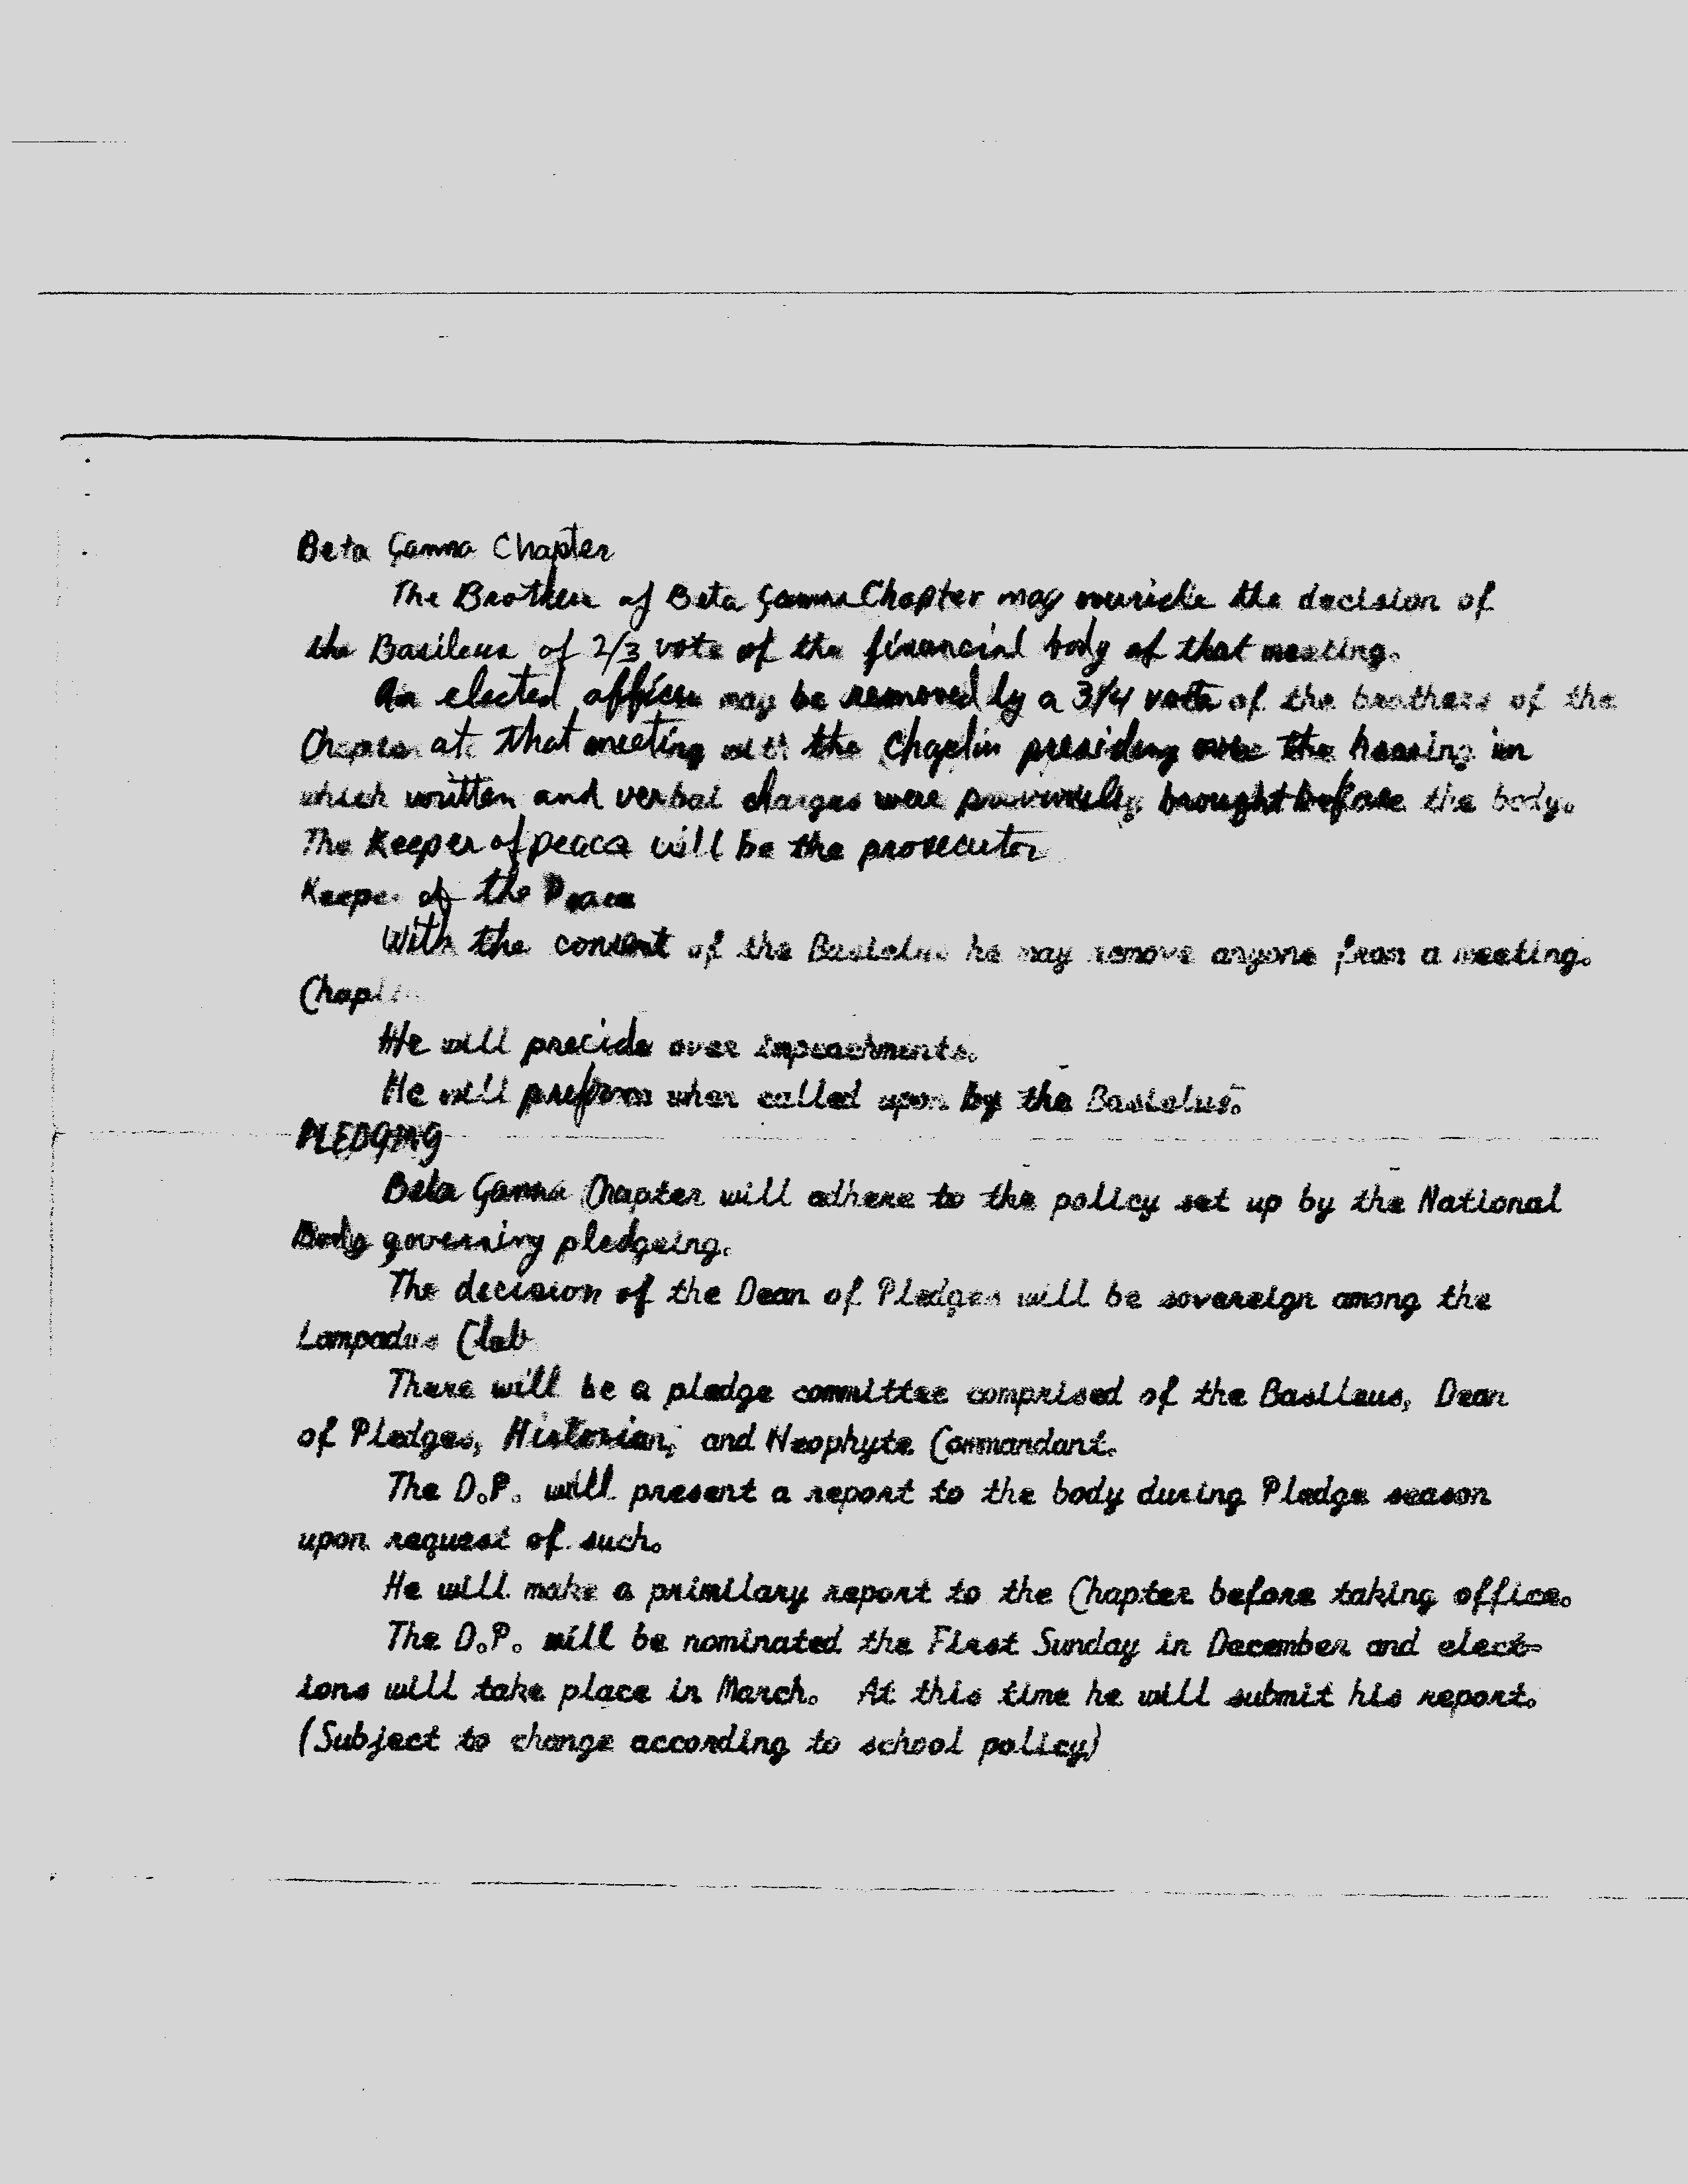 Beta Gamma Chapter
The Brothers of Beta Gamma Chapter may override the decision of
the Basileus of 2/3 vote of the financial body of that meeting.
An elected officer may be removed by a 3/4 vote of the brothers of the
Chapter at that meeting with the Chaplin presiding over the hearing in
which written and verbal charges were previously brought before the body.
The Keeper of peace will be the prosecutor
Keeper of the Peace
With the consent of the Basielus he may remove anyone from a meeting.
Chaplin
He will precide over impeachments.
He will preform when called upon by the Basielus.
PLEDGING
Beta Gamma Chapter will adhere to the policy set up by the National
Body governing pledgeing.
The decision of the Dean of Pledges will be sovereign among the
Lampadus Club
There will be a pledge committee comprised of the Basileus, Dean
of Pledges, Historian, and Neophyte Commandant.
The D.P. will present a report to the body during Pledge season
upon request of such.
He will make a primilary report to the Chapter before taking office.
The D.P. will be nominated the First Sunday in December and elect-
ions will take place in March. At this time he will submit his report.
(Subject to change according to school policy)